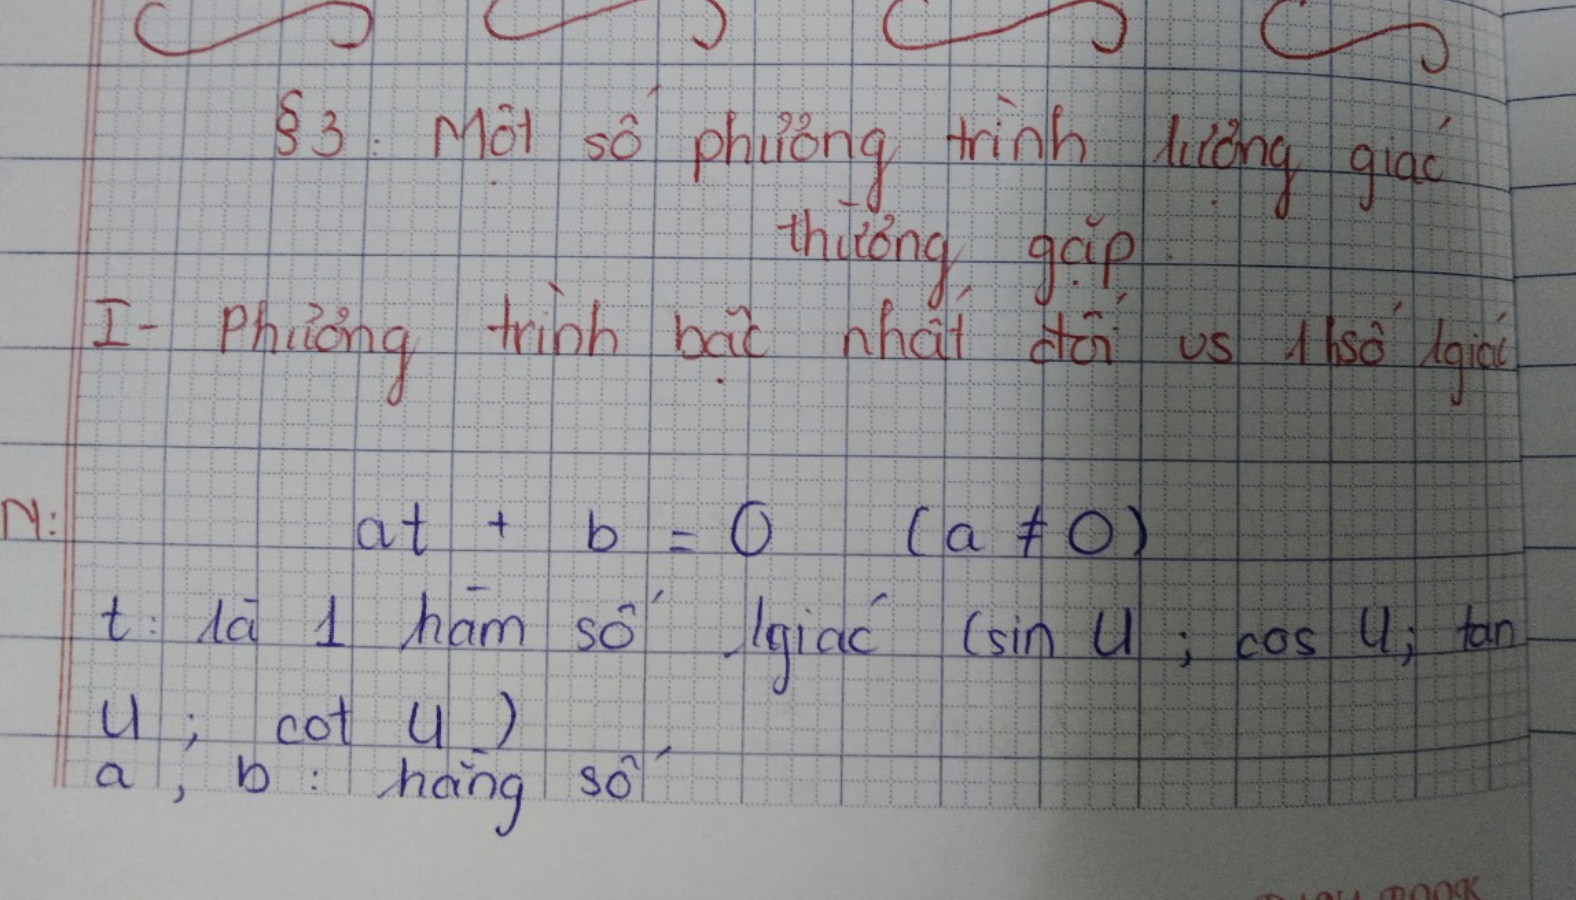 §3. Một số phương trình lượng giác
thường gặp
I- Phương trình bậc nhất đối vs 1 hsố lgiác
N: at + b = 0 (a ≠ 0)
t: là 1 hàm số lgiác (sin u ; cos u; tan
u ; cot u )
a , b : hằng số